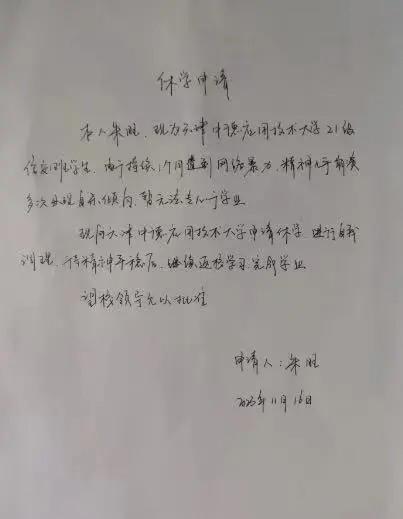 休学申请
本人朱旺,现为天津中德应用技术大学21级
信安班学生,由于持续1个月遭到网络暴力,精神几乎崩溃
多次出现自杀倾向,暂无法专心于学业
现向天津中德应用技术大学申请休学,进行自我
调理,待精神平稳后,继续返校学习完成学业
望校领导允以批准
申请人:朱旺
2023年11月16日